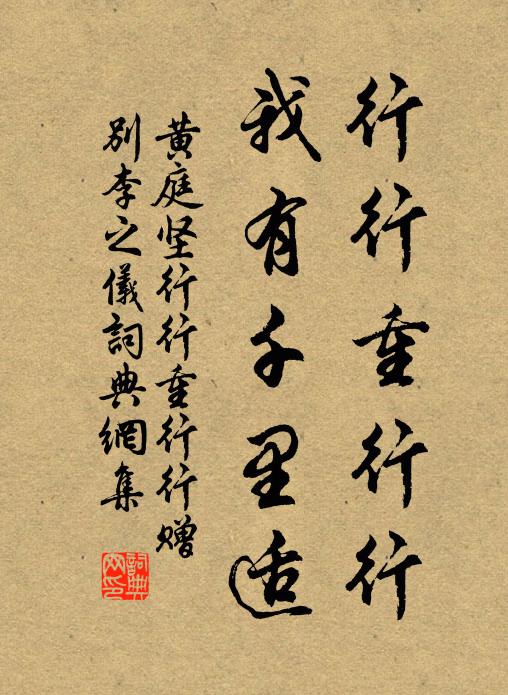 行行重行行
我有千里适
黄庭坚行行重行行赠
别李之儀詞典網集
詞典网印